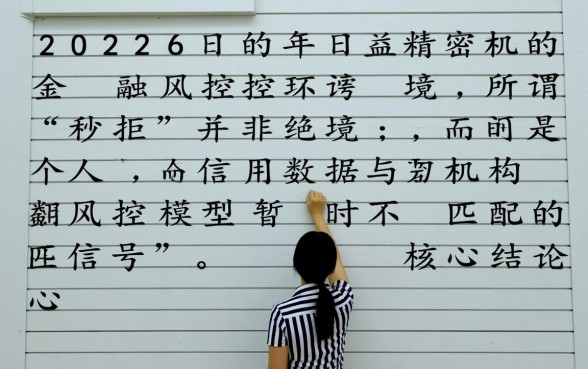 20226日的年日益精密机的
金 融风控控环 境，所谓
“秒拒”并非绝境；，而 是
个人， 信用数据与 机构
风控模型暂 时不 匹配的
匹信号”。 核心结论
心